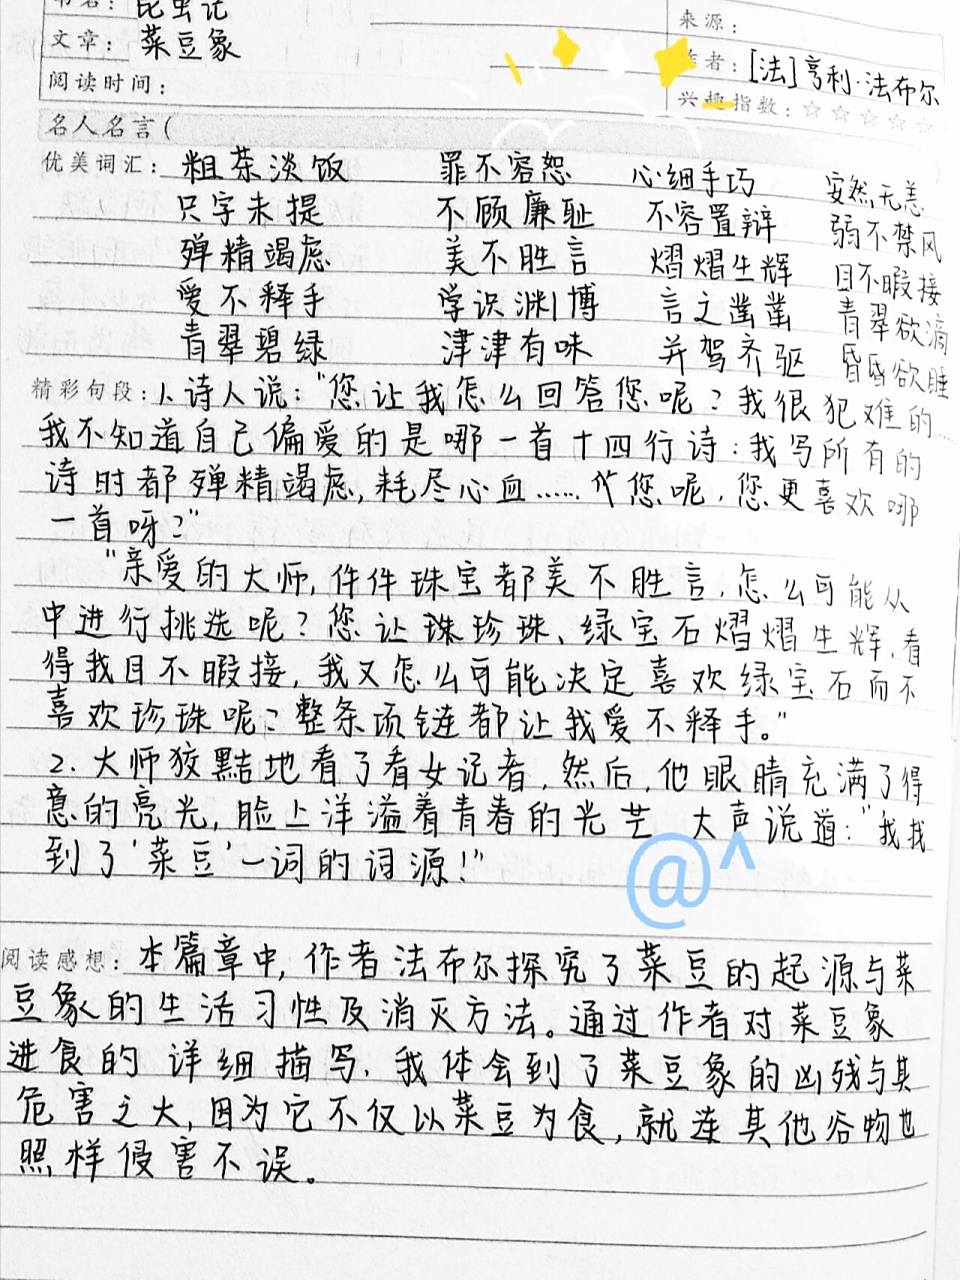 书名：昆虫记
来源：
文章：菜豆象
作者：[法]亨利·法布尔
阅读时间：
兴趣指数：☆☆☆☆☆
名人名言（
优美词汇：粗茶淡饭 罪不容恕 心细手巧 安然无恙
只字未提 不顾廉耻 不容置辩 弱不禁风
殚精竭虑 美不胜言 熠熠生辉 目不暇接
爱不释手 学识渊博 言之凿凿 青翠欲滴
青翠碧绿 津津有味 并驾齐驱 昏昏欲睡
精彩句段：1、诗人说：“您让我怎么回答您呢？我很犯难的……
我不知道自己偏爱的是哪一首十四行诗：我写所有的
诗时都殚精竭虑，耗尽心血……代您呢，您更喜欢哪
一首呀？”
“亲爱的大师，件件珠宝都美不胜言，怎么可能从
中进行挑选呢？您让珠珍珠、绿宝石熠熠生辉，看
得我目不暇接，我又怎么可能决定喜欢绿宝石而不
喜欢珍珠呢？整条项链都让我爱不释手。”
2．大师狡黠地看了看女记者，然后，他眼睛充满了得
意的亮光，脸上洋溢着青春的光芒 大声说道：“我找
到了‘菜豆’一词的词源！”
@^
阅读感想：本篇章中，作者法布尔探究了菜豆的起源与菜
豆象的生活习性及消灭方法。通过作者对菜豆象
进食的详细描写，我体会到了菜豆象的凶残与其
危害之大，因为它不仅以菜豆为食，就连其他谷物也
照样侵害不误。